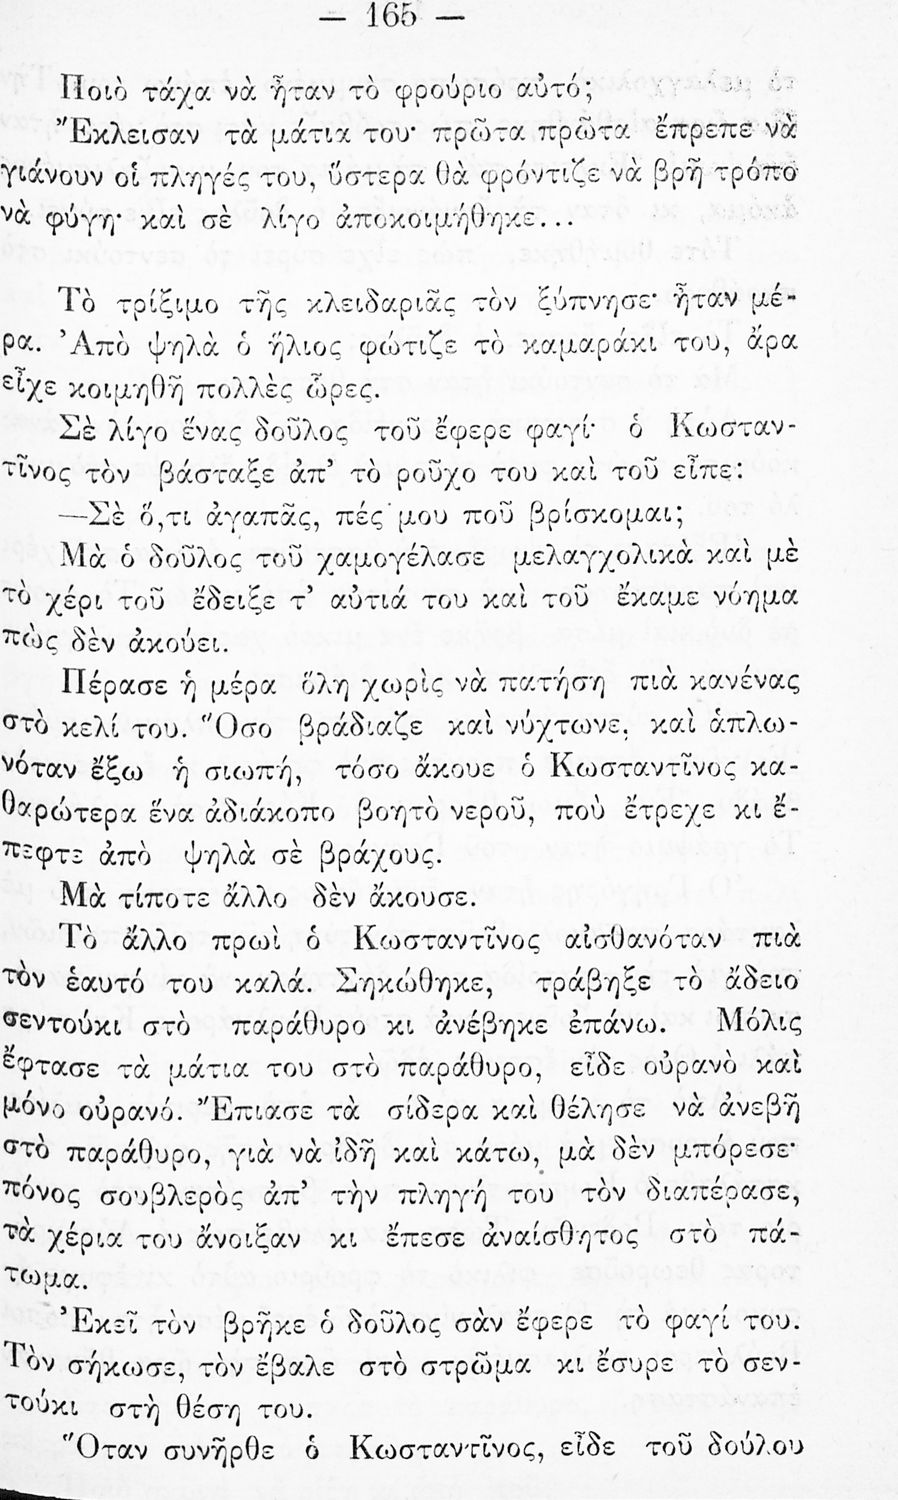 — 165 —
Ποιὸ τάχα νὰ ἦταν τὸ φρούριο αὐτό;
Ἔκλεισαν τὰ μάτια του· πρῶτα πρῶτα ἔπρεπε νὰ
γιάνουν οἱ πληγές του, ὕστερα θὰ φρόντιζε νὰ βρῆ τρόπο
νὰ φύγη· καὶ σὲ λίγο ἀποκοιμήθηκε...
Τὸ τρίξιμο τῆς κλειδαριᾶς τὸν ξύπνησε· ἦταν μέ-
ρα. Ἀπὸ ψηλὰ ὁ ἥλιος φώτιζε τὸ καμαράκι του, ἄρα
εἶχε κοιμηθῆ πολλὲς ὧρες.
Σὲ λίγο ἕνας δοῦλος τοῦ ἔφερε φαγί· ὁ Κωσταν-
τῖνος τὸν βάσταξε ἀπ’ τὸ ροῦχο του καὶ τοῦ εἶπε:
—Σὲ ὅ,τι ἀγαπᾶς, πές μου ποῦ βρίσκομαι;
Μὰ ὁ δοῦλος τοῦ χαμογέλασε μελαγχολικὰ καὶ μὲ
τὸ χέρι τοῦ ἔδειξε τ’ αὐτιά του καὶ τοῦ ἔκαμε νόημα
πὼς δὲν ἀκούει.
Πέρασε ἡ μέρα ὅλη χωρὶς νὰ πατήση πιὰ κανένας
στὸ κελί του. Ὅσο βράδιαζε καὶ νύχτωνε, καὶ ἁπλω-
νόταν ἔξω ἡ σιωπή, τόσο ἄκουε ὁ Κωσταντῖνος κα-
θαρώτερα ἕνα ἀδιάκοπο βοητὸ νεροῦ, ποὺ ἔτρεχε κι ἔ-
πεφτε ἀπὸ ψηλὰ σὲ βράχους.
Μὰ τίποτε ἄλλο δὲν ἄκουσε.
Τὸ ἄλλο πρωὶ ὁ Κωσταντῖνος αἰσθανόταν πιὰ
τὸν ἑαυτό του καλά. Σηκώθηκε, τράβηξε τὸ ἄδειο
σεντούκι στὸ παράθυρο κι ἀνέβηκε ἐπάνω. Μόλις
ἔφτασε τὰ μάτια του στὸ παράθυρο, εἶδε οὐρανὸ καὶ
μόνο οὐρανό. Ἔπιασε τὰ σίδερα καὶ θέλησε νὰ ἀνεβῆ
στὸ παράθυρο, γιὰ νὰ ἰδῆ καὶ κάτω, μὰ δὲν μπόρεσε·
πόνος σουβλερὸς ἀπ’ τὴν πληγή του τὸν διαπέρασε,
τὰ χέρια του ἄνοιξαν κι ἔπεσε ἀναίσθητος στὸ πά-
τωμα.
Ἐκεῖ τὸν βρῆκε ὁ δοῦλος σὰν ἔφερε τὸ φαγί του.
Τὸν σήκωσε, τὸν ἔβαλε στὸ στρῶμα κι ἔσυρε τὸ σεν-
τούκι στὴ θέση του.
Ὅταν συνῆρθε ὁ Κωσταντῖνος, εἶδε τοῦ δούλου